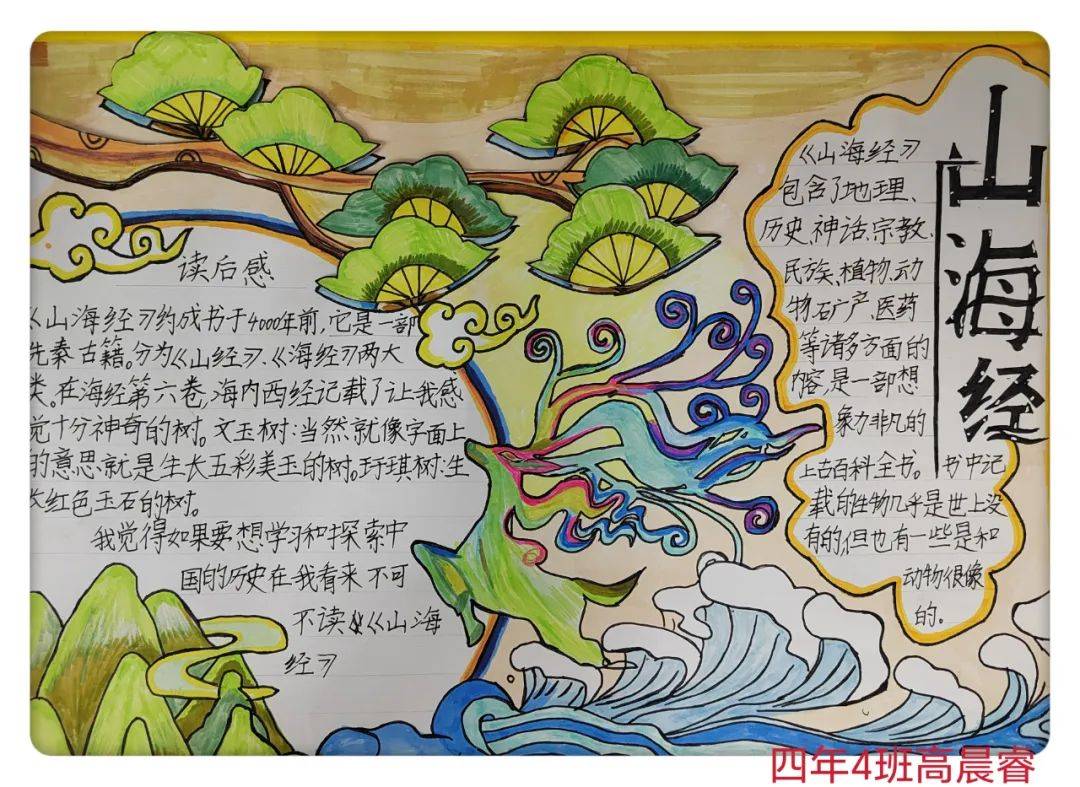 山海经
读后感
《山海经》约成书于4000年前,它是一部
先秦古籍。分为《山经》、《海经》两大
类。在海经第六卷,海内西经记载了让我感
觉十分神奇的树。文玉树:当然就像字面上
的意思就是生长五彩美玉的树。玗琪树:生
长红色玉石的树。
我觉得如果要想学习和探索中
国的历史在我看来不可
不读《山海
经》
《山海经》
包含了地理、
历史、神话、宗教、
民族、植物、动
物、石广产、医药
等诸多方面的
内容,是一部想
象力非凡的
上古百科全书。书中记
载的生物几乎是世上没
有的但也有一些是和
动物很像
的。
四年4班高晨睿